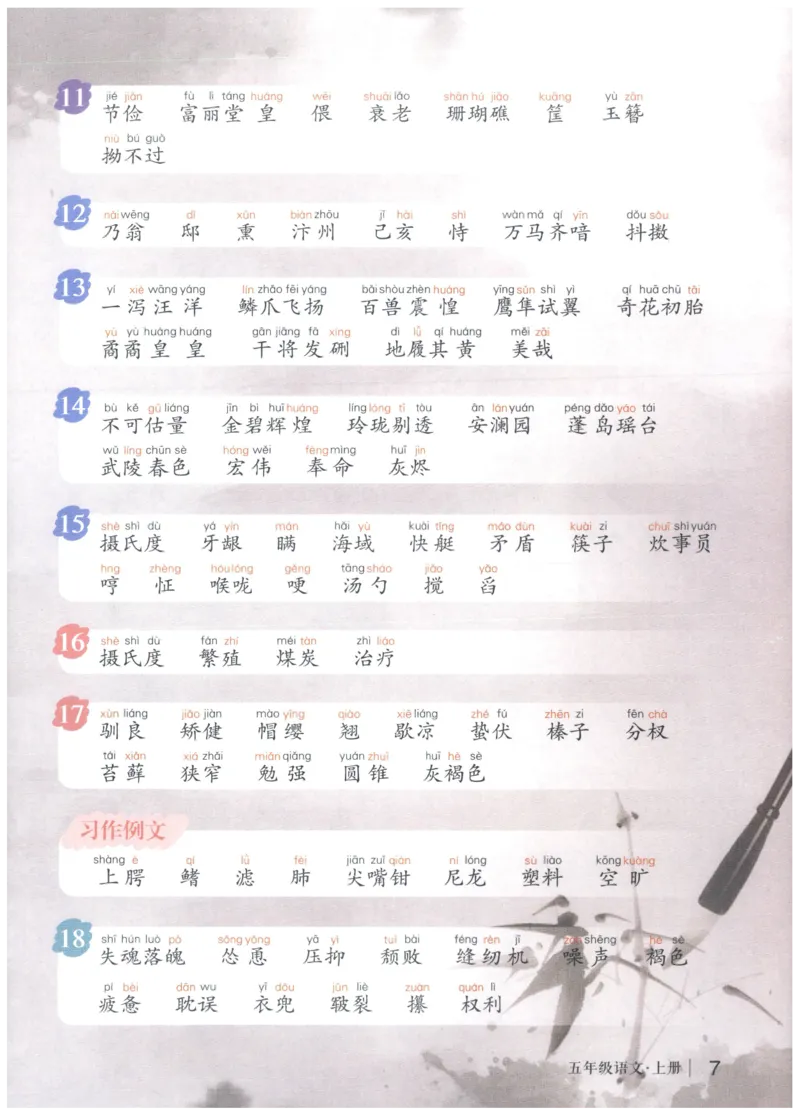 11
jié jiǎn fù lì táng huáng wēi shuāi lǎo shān hú jiāo kuāng yù zān
节俭 富丽堂皇 偎 衰老 珊瑚礁 筐 玉簪
niù bú guò
拗不过
12
nǎi wēng dǐ xūn biàn zhōu jǐ hài shì wàn mǎ qí yīn dǒu sǒu
乃翁 邸 熏 汴州 己亥 恃 万马齐喑 抖擞
13
yí xiè wāng yáng lín zhǎo fēi yáng bǎi shòu zhèn huáng yīng sǔn shì yì qí huā chū tāi
一泻汪洋 鳞爪飞扬 百兽震惶 鹰隼试翼 奇花初胎
yù yù huáng huáng gān jiāng fā xíng dì lǚ qí huáng měi zāi
矞矞皇皇 干将发硎 地履其黄 美哉
14
bù kě gū liáng jīn bì huī huáng líng lóng tī tòu ān lán yuán péng dǎo yáo tái
不可估量 金碧辉煌 玲珑剔透 安澜园 蓬岛瑶台
wǔ líng chūn sè hóng wěi fèng mìng huī jìn
武陵春色 宏伟 奉命 灰烬
15
shè shì dù yá yín mán hǎi yù kuài tǐng máo dùn kuài zi chuī shì yuán
摄氏度 牙龈 瞒 海域 快艇 矛盾 筷子 炊事员
hng zhèng hóu lóng gěng tāng sháo jiǎo yǎo
哼 怔 喉咙 哽 汤勺 搅 舀
16
shè shì dù fán zhí méi tàn zhì liáo
摄氏度 繁殖 煤炭 治疗
17
xùn liáng jiǎo jiàn mào yīng qiào xiē liáng zhé fú zhēn zi fēn chà
驯良 矫健 帽缨 翘 歇凉 蛰伏 榛子 分杈
tái xiǎn xiá zhǎi miǎn qiǎng yuán zhuī huī hè sè
苔藓 狭窄 勉强 圆锥 灰褐色
习作例文
shàng è qí lǜ fèi jiān zuǐ qián ní lóng sù liào kōng kuàng
上腭 鳍 滤 肺 尖嘴钳 尼龙 塑料 空旷
18
shī hún luò pò sǒng yǒng yā yì tuí bài féng rèn jī zào shēng hè sè
失魂落魄 怂恿 压抑 颓败 缝纫机 噪声 褐色
pí bèi dān wu yī dōu jūn liè zuàn quán lì
疲惫 耽误 衣兜 皲裂 攥 权利
五年级语文·上册 7